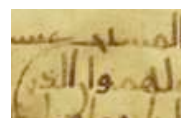 المسيح عيسى
لهم وان الذين